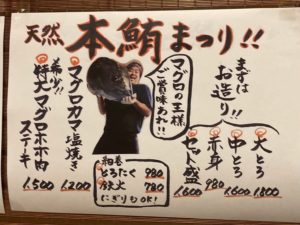 天然 本鮪まつり!!
まずは
お造り!!
大とろ 1.800
中とろ 1.600
赤身 980
セット盛 1.600
マグロの王様
ご賞味あれ!!
マグロカマ塩焼き 1.200
希少!!
特大マグロホホ肉
ステーキ 1.500
細巻
とろたく 980
鉄火 780
にぎりもOK!